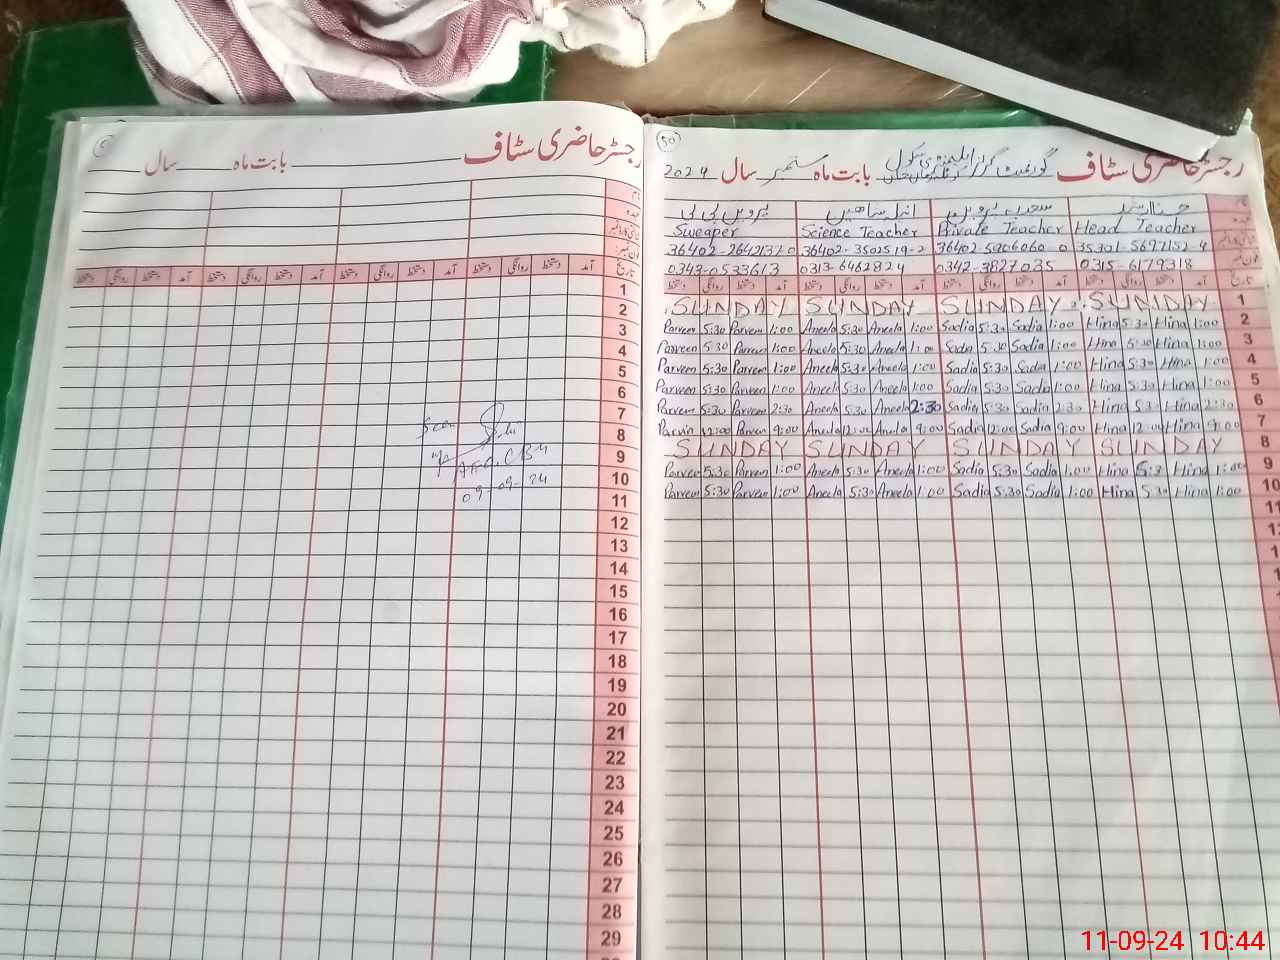 رجسٹر حاضری سٹاف بابت ماہ سال
نام
عہدہ
شناختی کارڈ نمبر
فون نمبر
تاریخ آمد دستخط روانگی دستخط آمد دستخط روانگی دستخط آمد دستخط روانگی دستخط آمد دستخط روانگی دستخط
1
2
3
4
5
6
7
8
9
10
11
12
13
14
15
16
17
18
19
20
21
22
23
24
25
26
27
28
29
Seen
09-09-24
50
رجسٹر حاضری سٹاف گورنمنٹ گرلز ایلیمنٹری سکول بابت ماہ ستمبر سال 2024
پروین بی بی
Sweaper Science Teacher Private Teacher Head Teacher
36402-2642137-0 36402-3502519-2 36402-5906060-0 35301-5697152-4
0343-0533613 0313-6462824 0342-3827035 0315-6179318
تاریخ آمد دستخط روانگی دستخط آمد دستخط روانگی دستخط آمد دستخط روانگی دستخط آمد دستخط روانگی دستخط
SUNDAY SUNDAY SUNDAY SUNDAY 1
Parveen 5:30 Parveen 1:00 Aneela 5:30 Aneela 1:00 Sadia 5:30 Sadia 1:00 Hina 5:30 Hina 1:00 2
Parveen 5:30 Parveen 1:00 Aneela 5:30 Aneela 1:00 Sadia 5:30 Sadia 1:00 Hina 5:30 Hina 1:00 3
Parveen 5:30 Parveen 1:00 Aneela 5:30 Aneela 1:00 Sadia 5:30 Sadia 1:00 Hina 5:30 Hina 1:00 4
Parveen 5:30 Parveen 1:00 Aneela 5:30 Aneela 1:00 Sadia 5:30 Sadia 1:00 Hina 5:30 Hina 1:00 5
Parveen 5:30 Parveen 2:30 Aneela 5:30 Aneela 2:30 Sadia 5:30 Sadia 2:30 Hina 5:30 Hina 2:30 6
Parvin 12:00 Parveen 9:00 Aneela 12:00 Aneela 9:00 Sadia 12:00 Sadia 9:00 Hina 12:00 Hina 9:00 7
SUNDAY SUNDAY SUNDAY SUNDAY 8
Parveen 5:30 Parveen 1:00 Aneela 5:30 Aneela 1:00 Sadia 5:30 Sadia 1:00 Hina 5:3 Hina 1:00 9
Parveen 5:30 Parveen 1:00 Aneela 5:30 Aneela 1:00 Sadia 5:30 Sadia 1:00 Hina 5:30 Hina 1:00 10
11
11-09-24 10:44